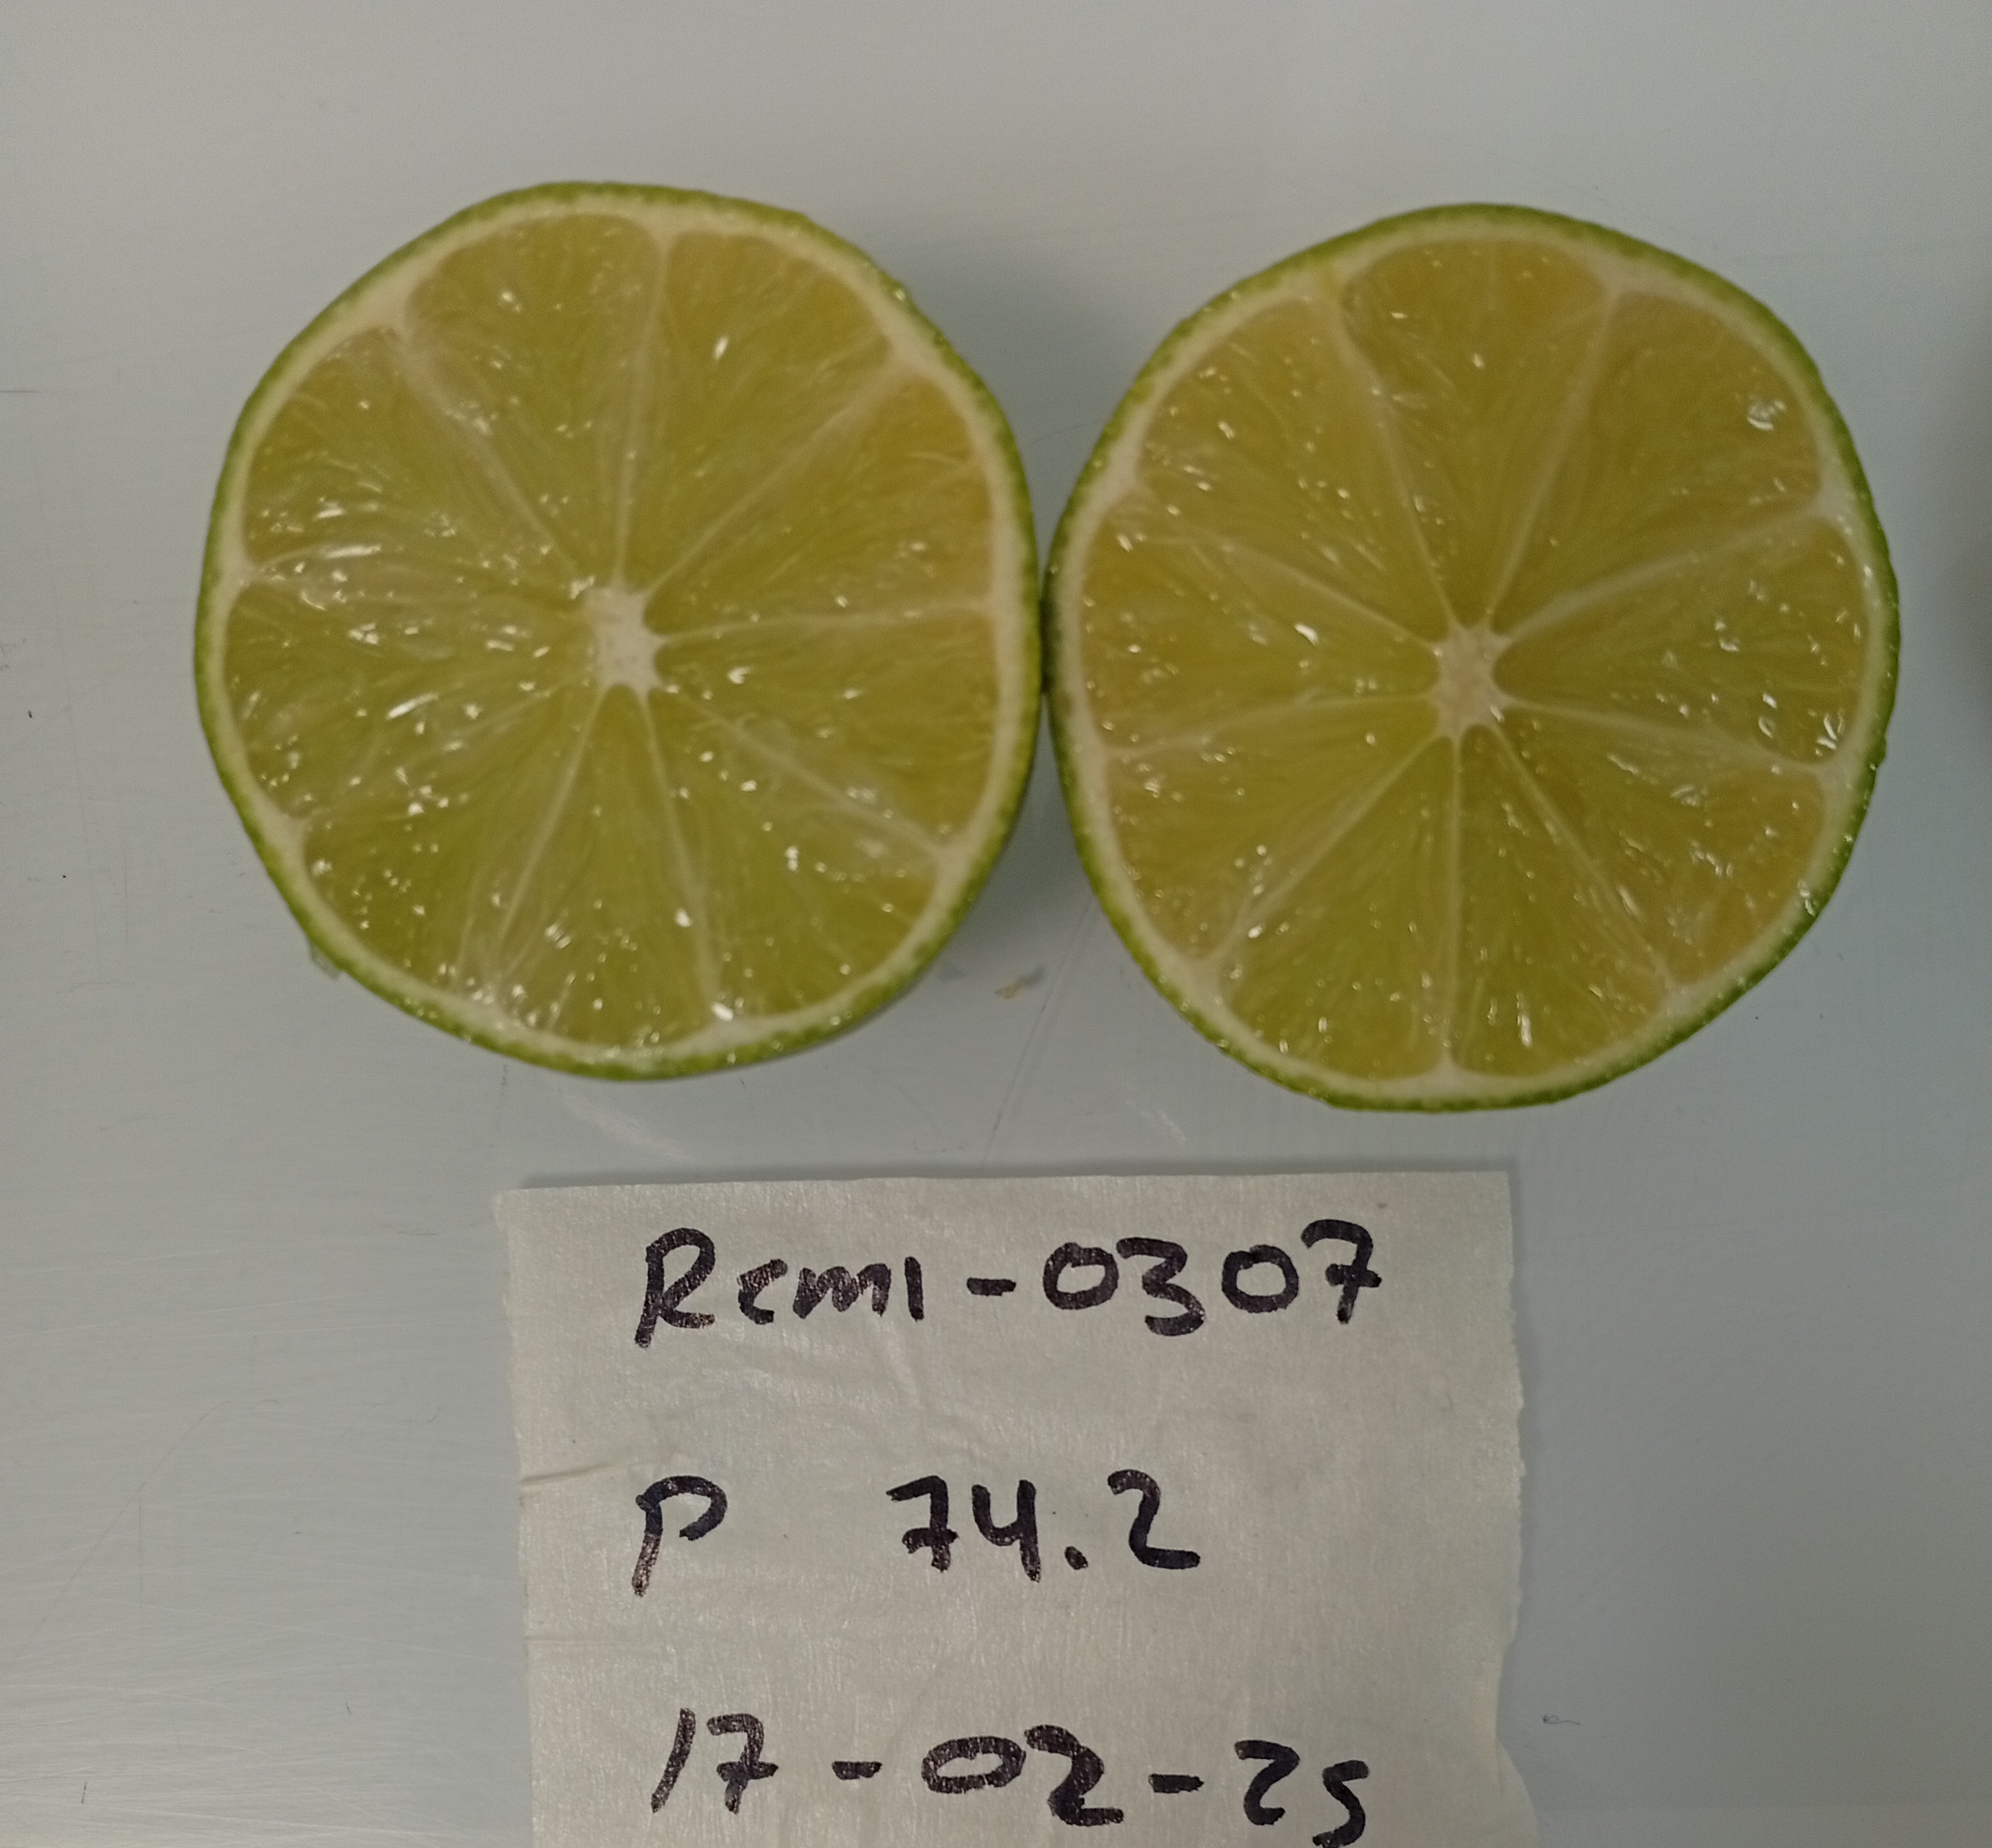 Rcml-0307
P 74.2
17-02-25